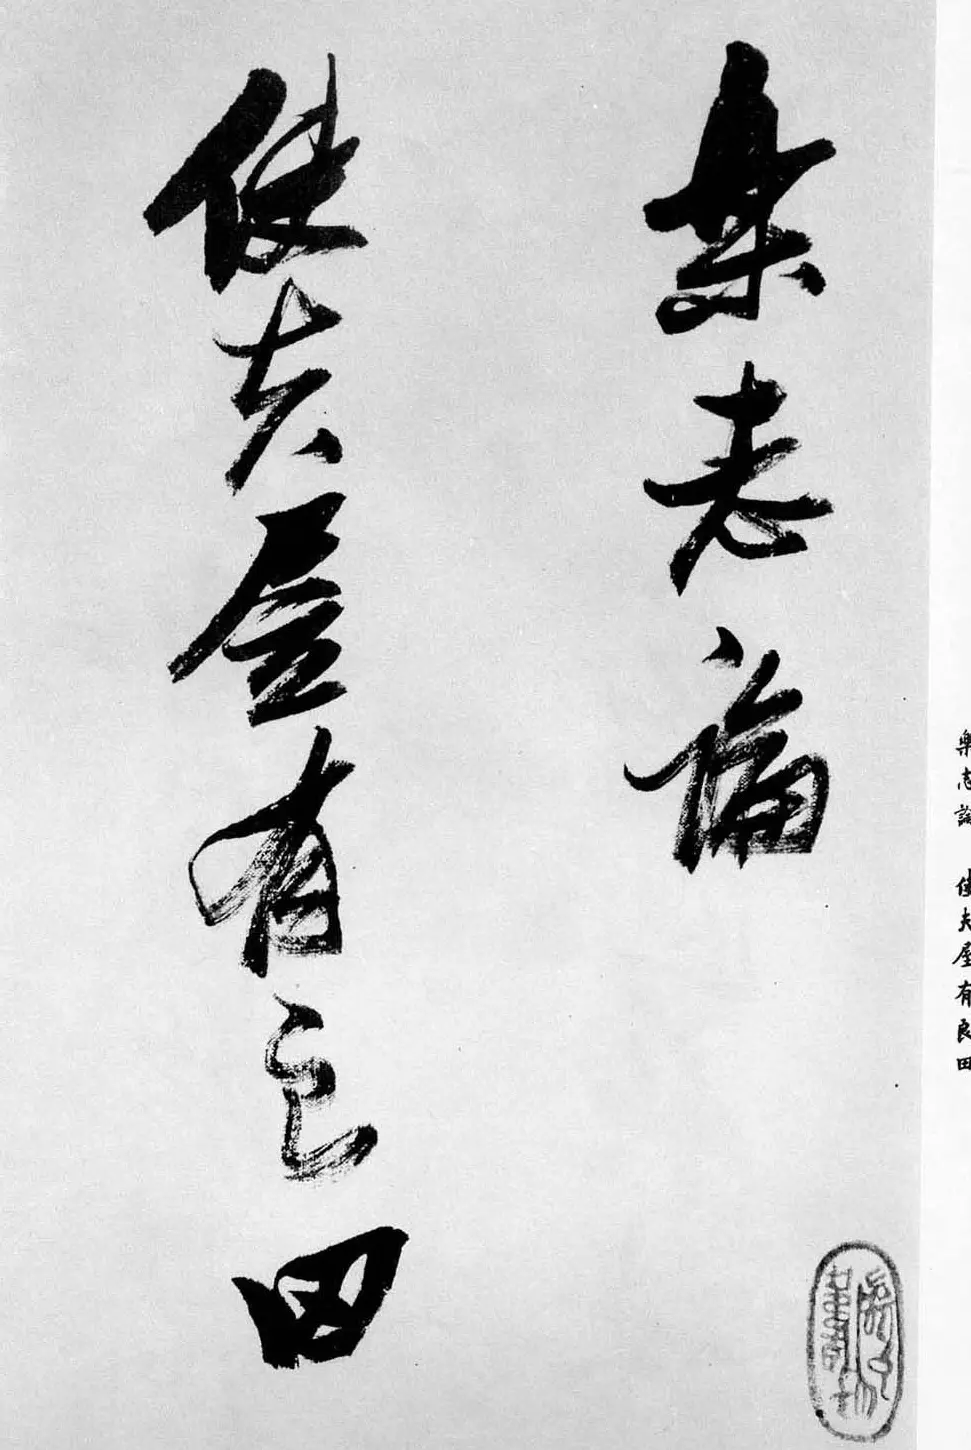 樂志論
使夫屋有良田
樂志論 使夫屋有良田